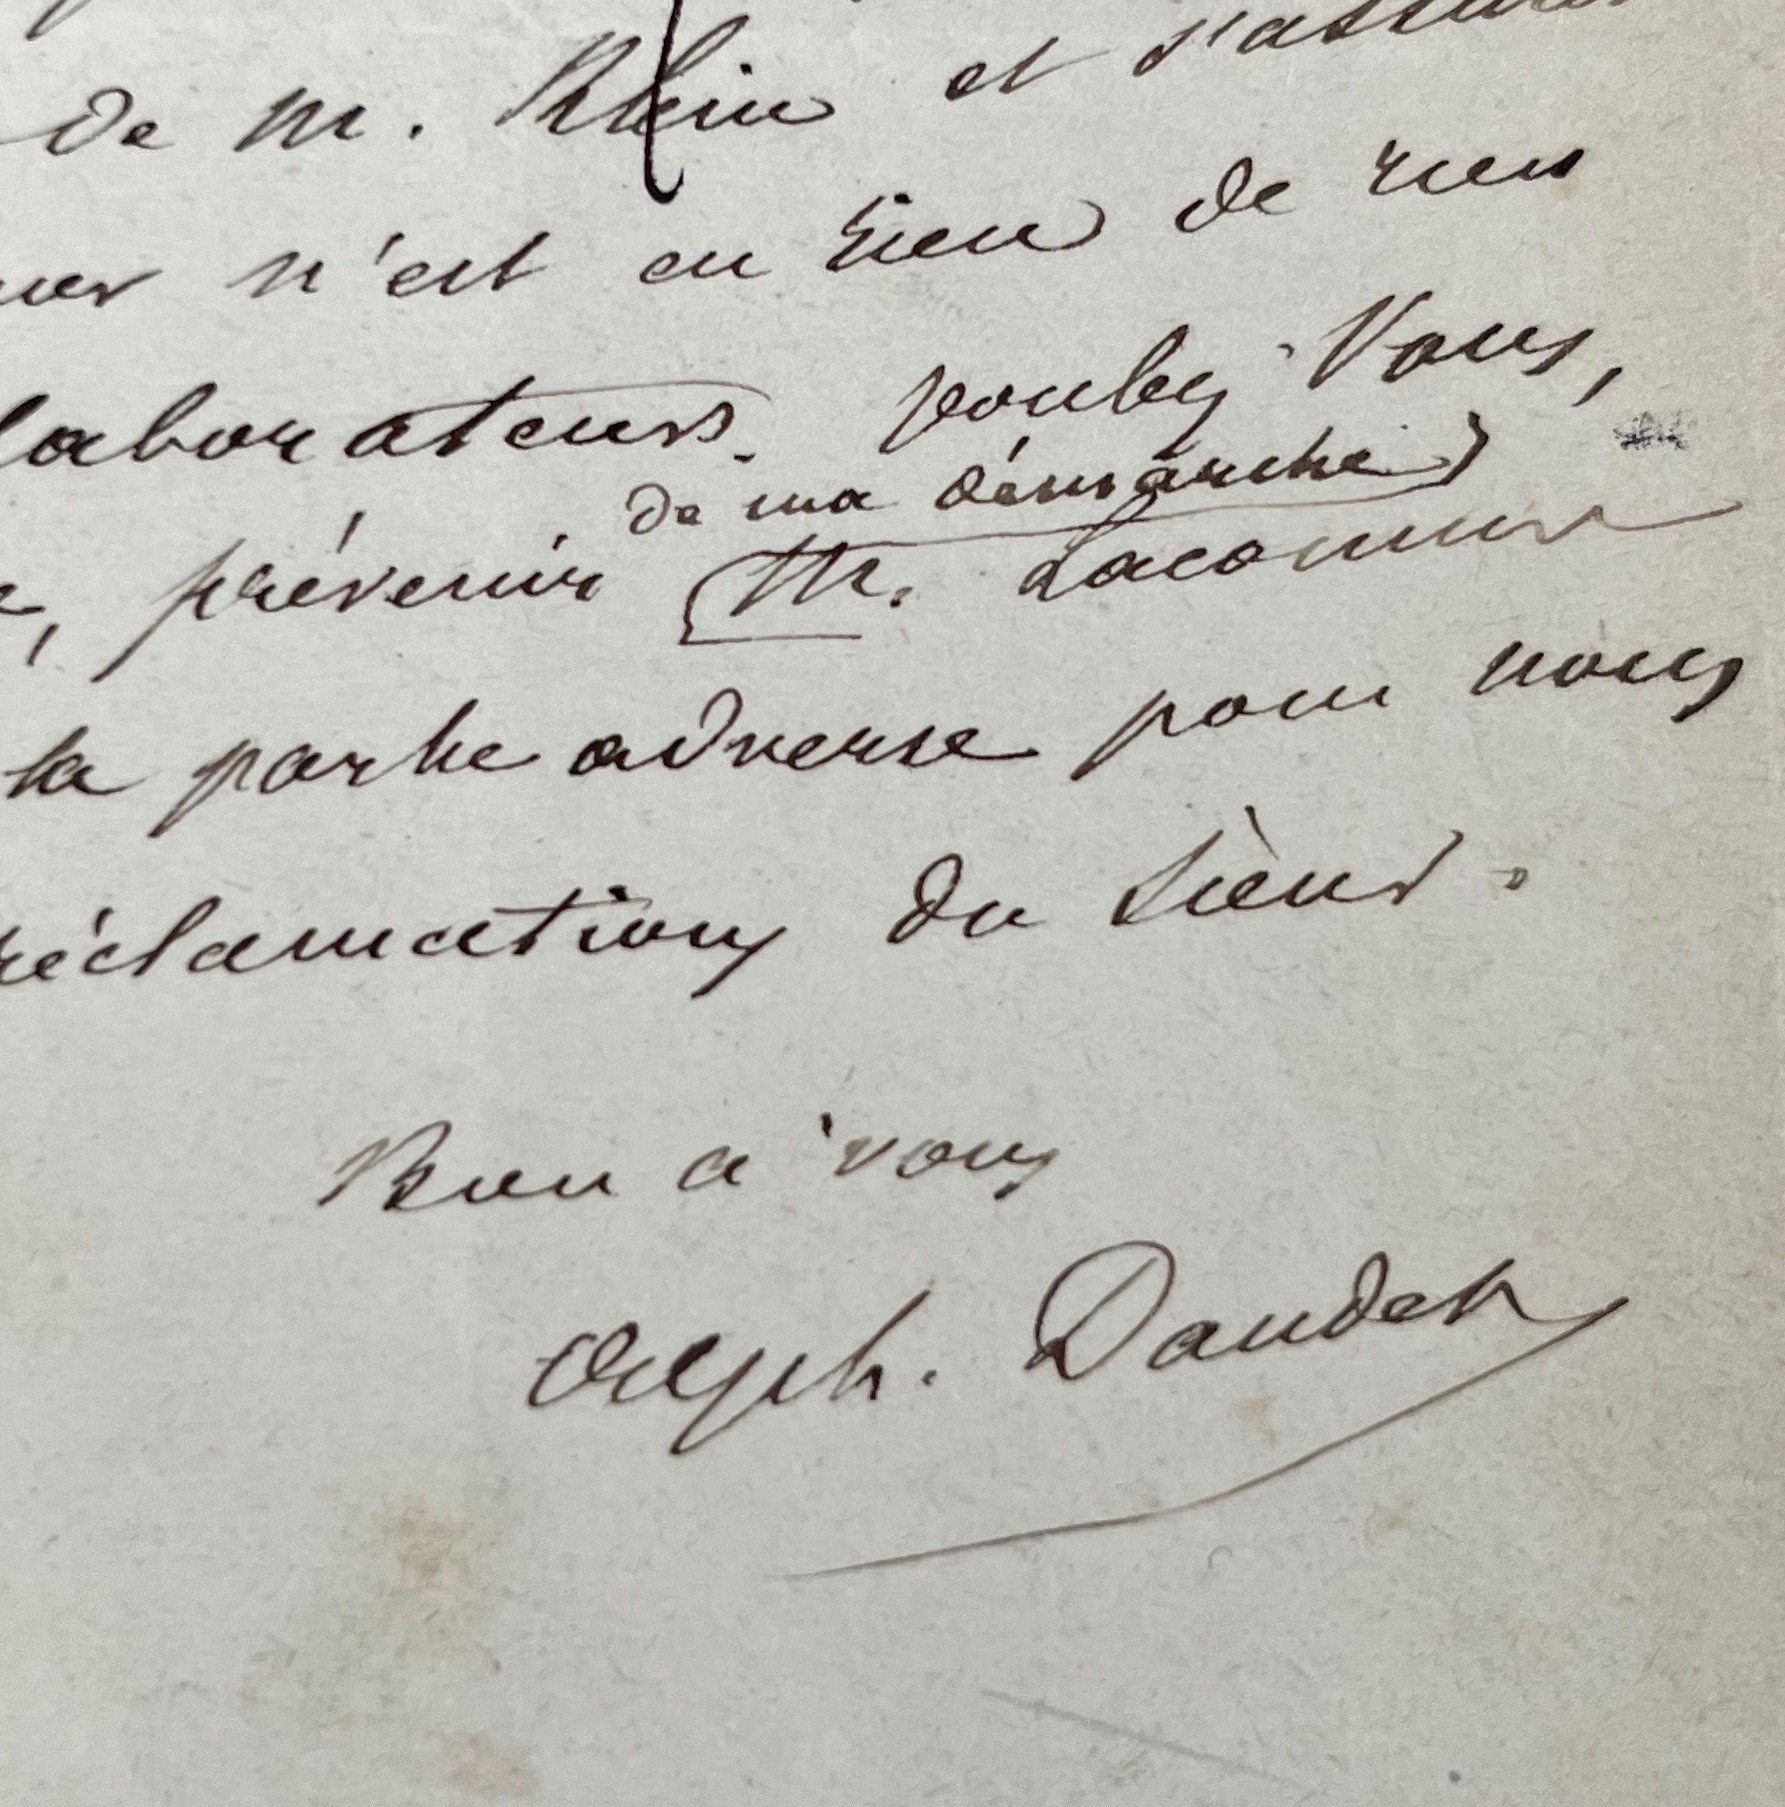 de M. Klein et s'assurer
n'est en rien de rien
laborateurs. voulez-vous,
de ma démarche
, prévenir M. Lacomme
la partie adverse pour nous
réclamations du sieur.
Bien à vous
Alph. Daudet